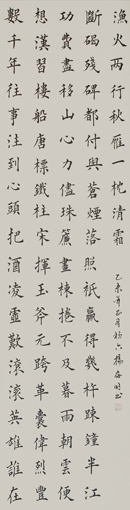 數千年往事注到心頭把酒凌虛歎滾滾英雄誰在
想漢習樓船唐標鐵柱宋揮玉斧元跨革囊偉烈豐
功費盡移山心力儘珠簾畫棟捲不及暮雨朝雲便
斷碣殘碑都付與蒼煙落照祇贏得幾杵踈鐘半江
漁火兩行秋雁一枕清霜
乙未年正月